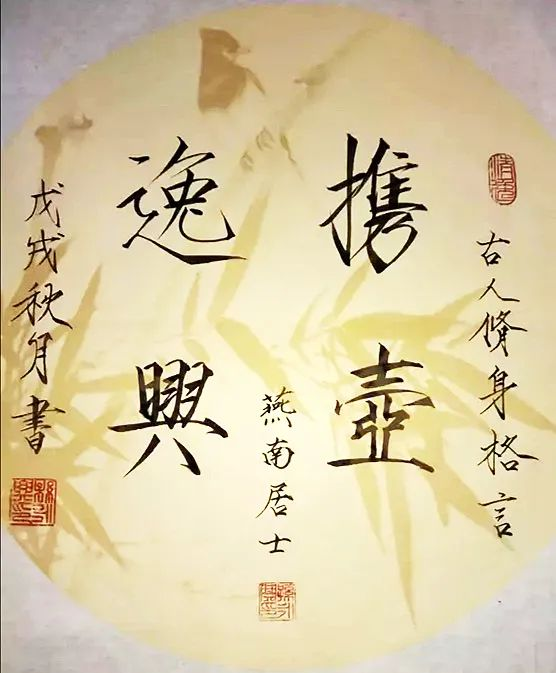 古人脩身格言
携壺
逸興
燕南居士
戊戌秋月書